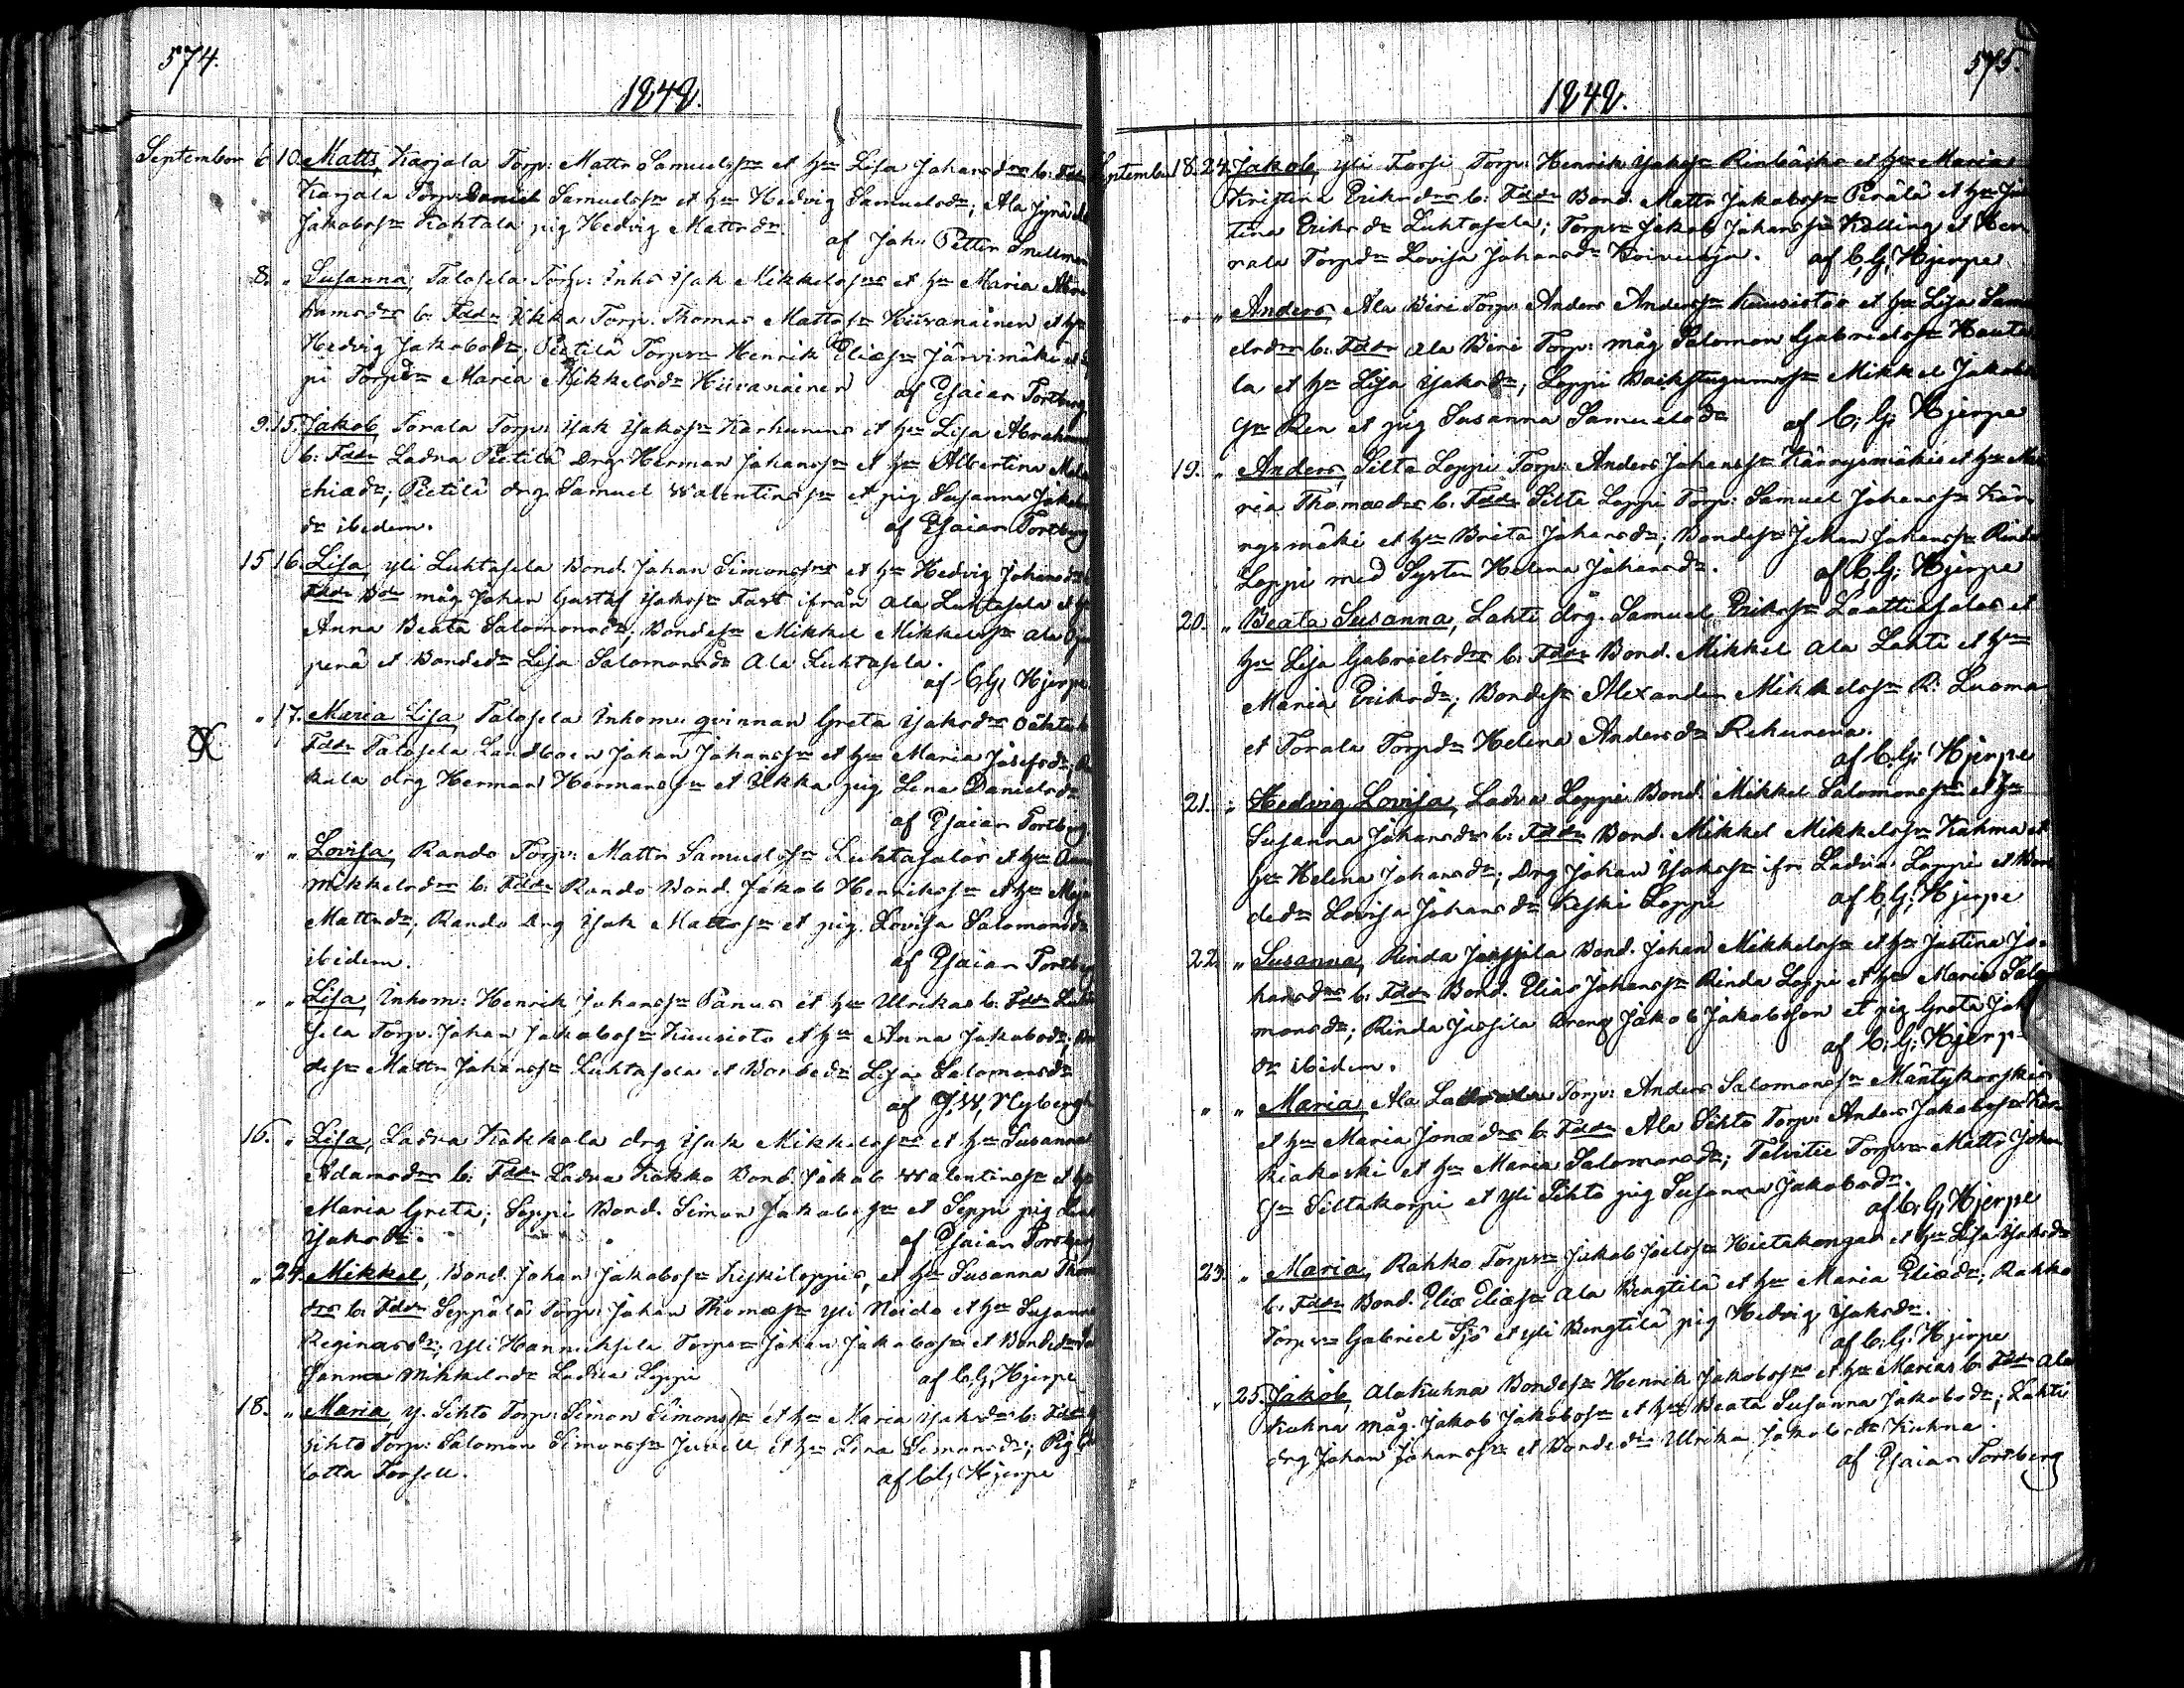 574.
1848.
September 6 10. Matts, Karjala Torp: Matts Samuelss:n et h:u Lisa Johansd:rs b: Fadd:r
Karjala Torp: Daniel Samuelss:n et h:u Hedvig Samuelsd:r; Ala Jyrä
Jakobss:n Kohtala pig Hedvig Mattsd:r.
af Joh: Petter Snellman
8. " Susanna, Talosela Torp: Inhs Isak Mikkelss:ns et h:u Maria Abra
hamsd:rs b: Fadd:r Ilkka Torp. Thomas Mattss:n Hiivanainen et h:u
Hedvig Jakobsd:r; Pietilä Torp:n Henrik Eliæs:n Järvimäki et
pi Torpd:n Maria Mikkelsd:r Hiivanainen
af Esaias Forsberg
9. 15. Jakob, Torala Torp: Isak Isakss:n Karhunens et h:u Lisa Abrahams
b: Fadd:r Ladva Pietilä Drg: Herman Johanss:n et h:u Albertina Mala
chiæd:r; Pietilä drg. Samuel Walentinss:n et pig. Susanna Jakobs
d:r ibidem.
af Esaias Forsberg
15 16. Lisa, Yli Luhtasela Bond. Johan Simonss:ns et h:u Hedvig Johansd:rs b:
Fadd:r B:de måg Johan Gustaf Isakss:n Fast ifrån Ala Luhtasela et h:u
Anna Beata Salomonsd:r; Bondes:n Mikkel Mikkelss:n Ala
perä et Bonded:n Lisa Salomonsd:r Ala Luhtasela.
af C. G. Hjerpe
" 17. Maria Lisa, Talosela Inhom: qvinnan Greta Isaksd:rs oäkta b:
Fadd:r Talosela Landboen Johan Johanss:n et h:u Maria Josefsd:r;
kala drg Herman Hermanss:n et Ilkka pig Lena Danielsd:r
af Esaias Forsberg
" " Lovisa, Rando Torp: Matts Samuelss:n Luhtasalos et h:u Anna
Mikkelsd:rs b: Fadd:r Rando Bond. Jakob Henrikss:n et h:u Maja
Mattsd:r; Rando drg Isak Mattss:n et pig. Lovisa Salomonsd:r
ibidem.
af Esaias Forsberg
" " Lisa, Inhom: Henrik Johanss:n Panus et h:u Ulrikas b: Fadd:r Luhta
sela Torp. Johan Jakobss:n Kuusisto et h:u Anna Jakobsd:r; Bon
des:n Matts Johanss:n Luhtasela et Bonded:n Lisa Salomonsd:r
af J. W. Nybergh
16. " Lisa, Ladva Kokkala drg Isak Mikkelss:ns et h:u Susanna
Adamsd:rs b: Fadd:r Ladva Kokko Bond. Jakob Walentinss:n et h:u
Maria Greta; Seppi Bond. Simon Jakobss:n et Seppi pig Lena
Isaksd:r.
af Esaias Forsberg
" 24. Mikkel, Bond. Johan Jakobss:n Keskiloppis, et h:u Susanna Thomæ
d:rs b: Fadd:r Seppälä Torp: Johan Thomæs:n Yli Noido et h:u Susanna
Reginasd:r; Yli Hannuksela Torps:n Johan Jakobss:n et Bonded:n Su
sanna Mikkelsd:r Ladva Loppi
af C. G. Hjerpe
18. " Maria, Y. Sihto Torp: Simon Simonss:n et h:u Maria Isaksd:rs b: Fadd:r Y.
Sihto Torp: Salomon Simonss:n Juvell et h:u Lena Simonsd:r; Pig
lotta Forsell.
af C. G. Hjerpe
575.
1848.
September 18. 24. Jakob, Yli Torsi Torp: Henrik Isakss:n Rinbäcks et h:u Maria
Kristina Eriksd:rs b: Fadd:r Bond. Matts Jakobss:n Perälä et h:u Jus
tina Eriksd:r Luhtasela; Torps:n Jakob Johanss:n Kelling et Her
rala Torpd:n Lovisa Johansd:r Koivusja.
af C. G. Hjerpe
" " Anders, Ala Viri Torp: Anders Anderss:n Kuusistos et h:u Lisa Samu
elsd:rs b: Fadd:r Ala Viri Torp: måg Salomon Gabrielss:n Hauta
la et h:u Lisa Isaksd:r; Loppi Backstugus:n Mikkel Jakobs
s:n Ren et pig Susanna Samuelsd:r
af C. G. Hjerpe
19. " Anders, Silta Loppi Torp: Anders Johanss:n Käävysmäkis et h:u Ma
ria Thomæd:rs b: Fadd:r Silta Loppi Torp: Samuel Johanss:n Kää
vysmäki et h:u Brita Johansd:r; Bondes:n Johan Johanss:n Rinda
Loppi med Systen Helena Johansd:r.
af C. G. Hjerpe
20. " Beata Susanna, Lahti drg. Samuel Erikss:n Laattiasalos et
h:u Lisa Gabrielsd:rs b: Fadd:r Bond. Mikkel Ala Lahti et h:u
Maria Eriksd:r; Bondes:n Alexander Mikkelss:n R: Luoma
et Torala Torpd:n Helena Andersd:r Rekunena.
af C. G. Hjerpe
21. " Hedvig Lovisa, Ladva Loppi Bond. Mikkel Salomonss:ns et h:u
Susanna Johansd:rs b: Fadd:r Bond. Mikkel Mikkelss:n Kuhma et
h:u Helena Johansd:r; Drg Johan Isakss:n ifr. Ladva Loppi et Bon
ded:n Lovisa Johansd:r Keski Loppi
af C. G. Hjerpe
22. " Susanna, Rinda Jussila Bond. Johan Mikkelss:n et h:u Justina Jo-
hansd:rs b: Fadd:r Bond. Elias Johanss:n Rinda Loppi et h:u Maria Salo
monsd:r; Rinda Jussila Dreng Jakob Jakobsson et pig Greta Joh
d:r ibidem.
af C. G. Hjerpe
" " Maria, Ala Torp: Anders Salomonss:n Mäntykoskis
et h:u Maria Jonæd:rs b: Fadd:r Ala Sihto Torp: Anders Jakobss:n
kiakoski et h:u Maria Salomonsd:r; Talvitie Torps:n Matts Johan
s:n Siltakorpi et Yli Sihto pig Susanna Jakobsd:r.
af C. G. Hjerpe
23. " Maria, Rahko Torps:n Jakob Joelss:n Hietakangas et h:u Lisa Isaksd:r
b. Fadd:r Bond. Eliæ Eliæs:n Ala Bengtilä et h:u Maria Eliæd:r; Rahko
Torps:n Gabriel Sjö et Yli Bengtilä pig Hedvig Isaksd:r.
af C. G. Hjerpe
" 25. Jakob, Ala Kuhna Bondes:n Henrik Jakobss:ns et h:u Marias b. Fadd:r Ala
Kuhna måg. Jakob Jakobss:n et h:u Beata Susanna Jakobsd:r; Lahti
drg Johan Johanss:n et Bonded:n Ulrika Jakobsd:r Kuhna.
af Esaias Forsberg